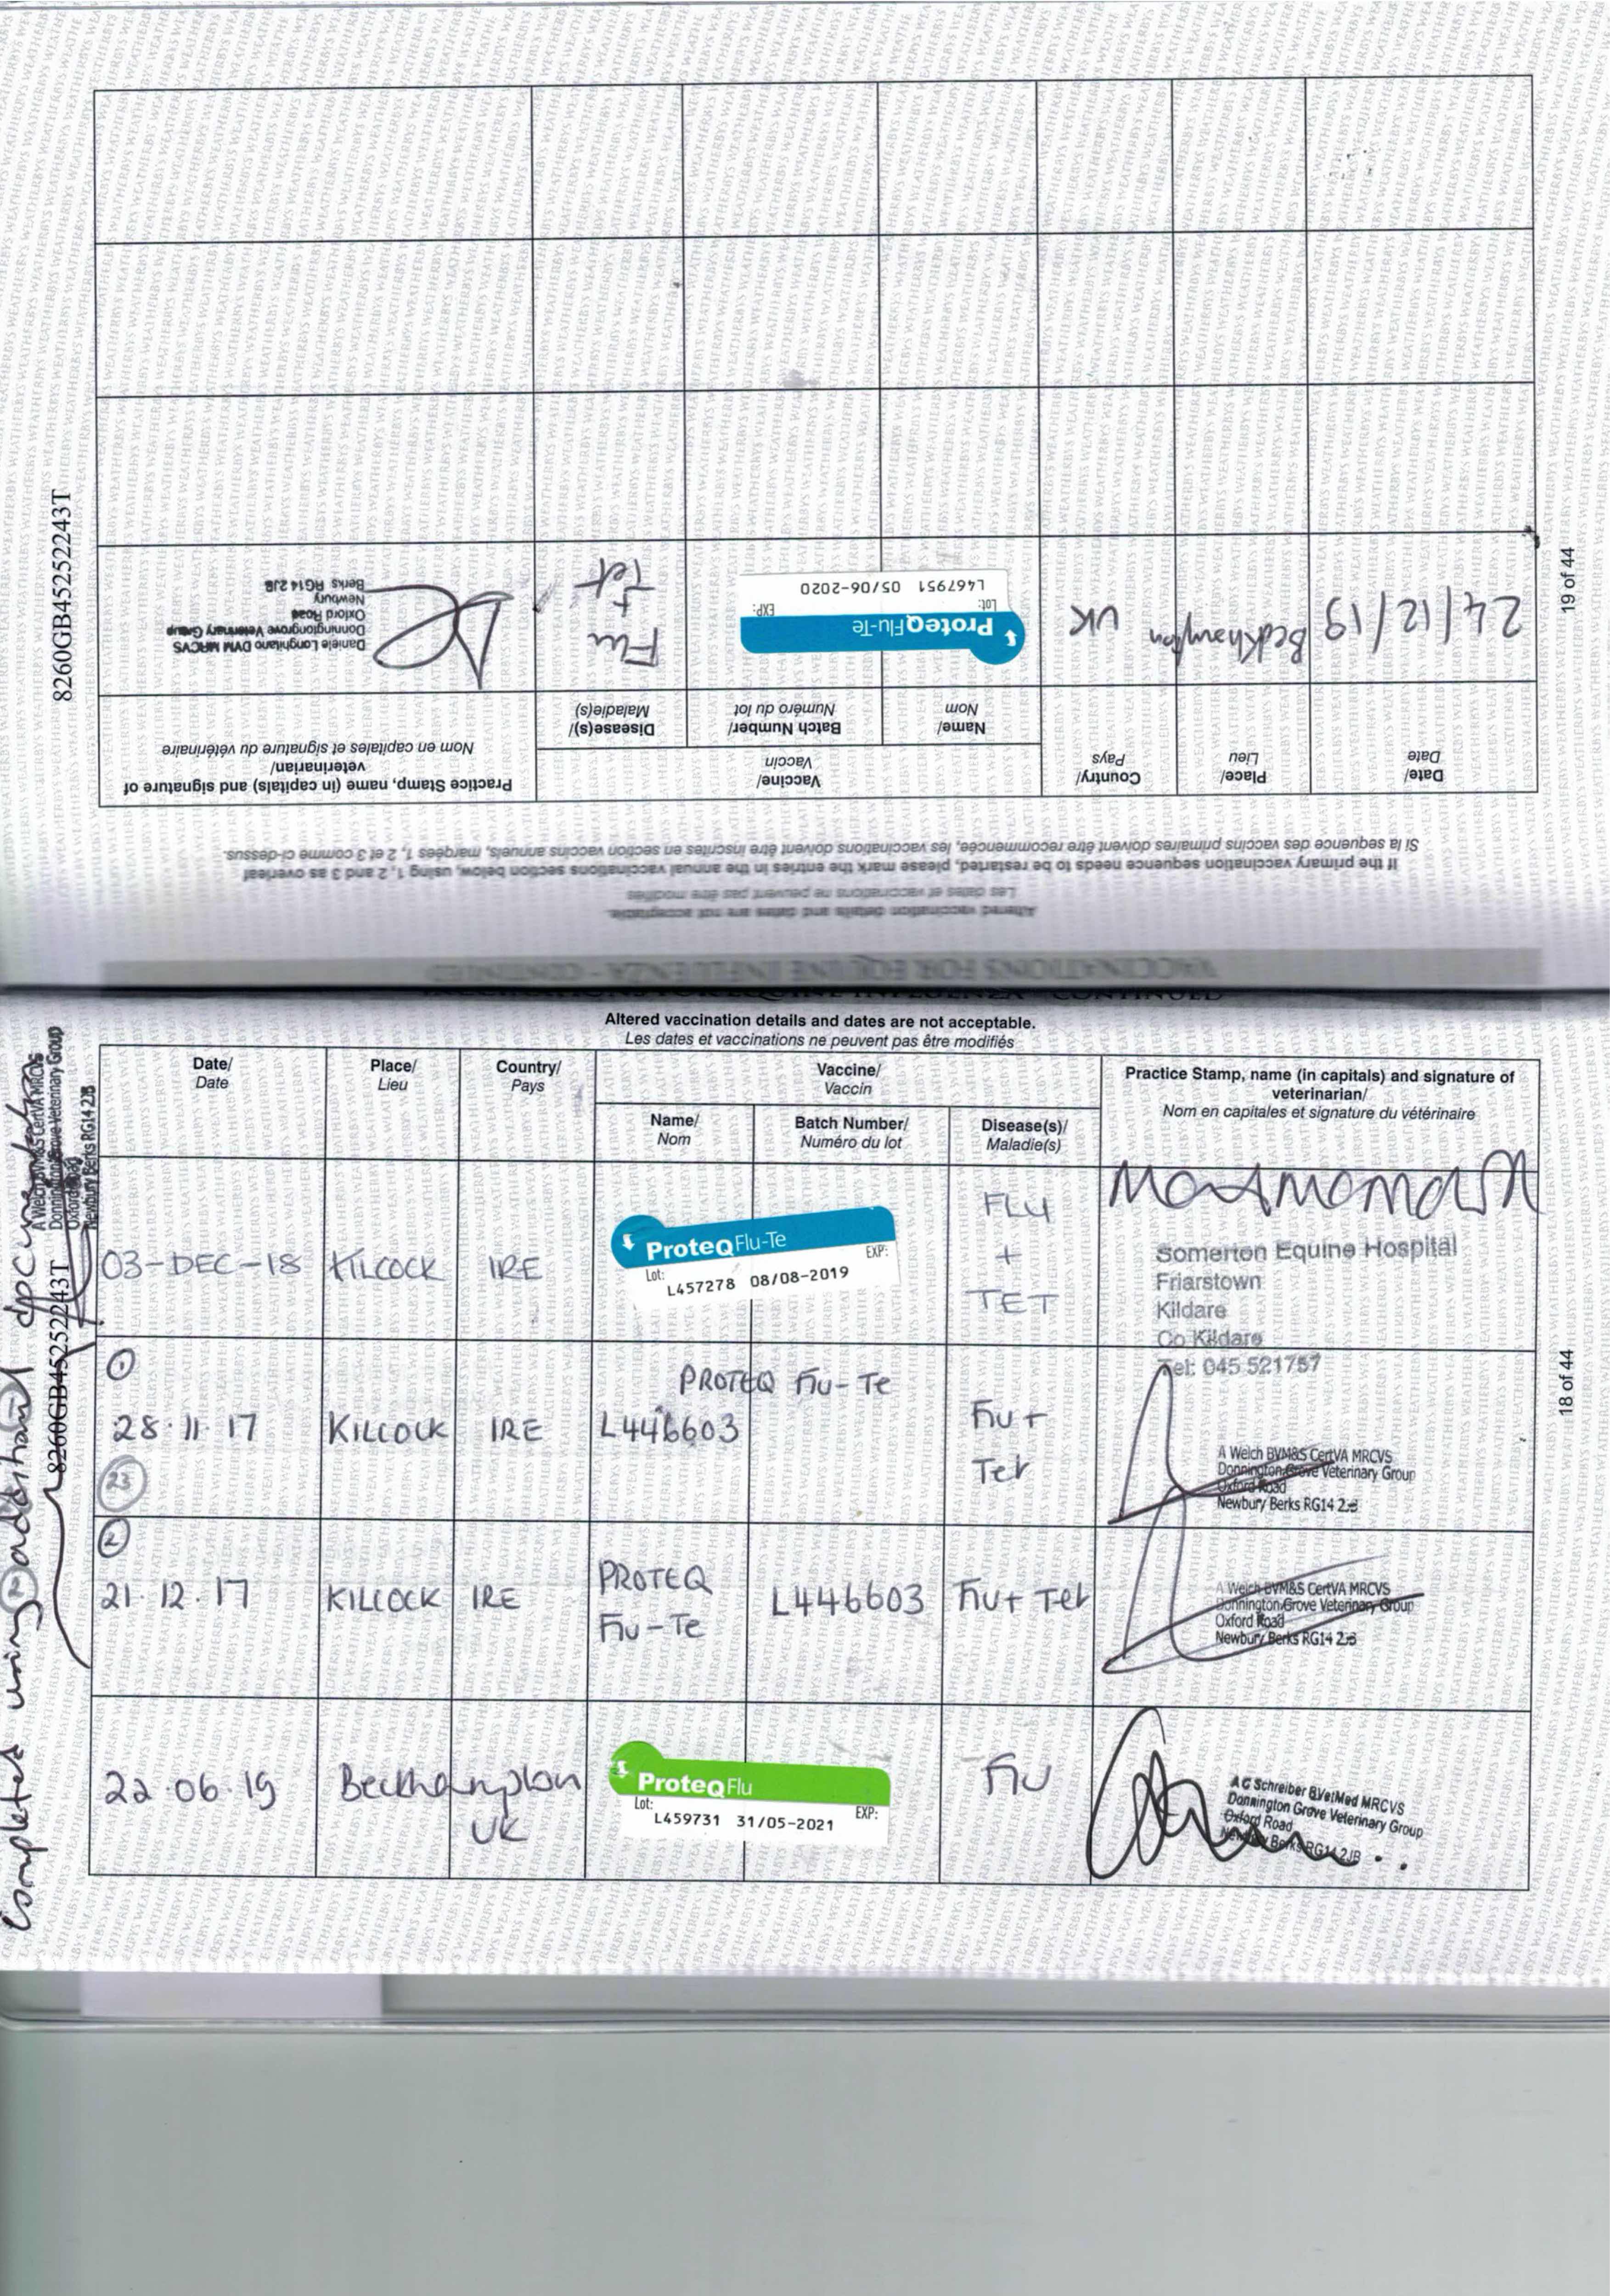 VACCINATIONS FOR EQUINE INFLUENZA - CONTINUED
Altered vaccination details and dates are not acceptable.
Les dates et vaccinations ne peuvent pas être modifiés
If the primary vaccination sequence needs to be restarted, please mark the entries in the annual vaccinations section below, using 1, 2 and 3 as overleaf
Si la sequence des vaccins primaires doivent être recommencée, les vaccinations doivent être inscrites en section vaccins annuels, marqées 1, 2 et 3 comme ci-dessus.
Date/
Date
Place/
Lieu
Country/
Pays
Vaccine/
Vaccin
Name/
Nom
Batch Number/
Numéro du lot
Disease(s)/
Maladie(s)
Practice Stamp, name (in capitals) and signature of
veterinarian/
Nom en capitales et signature du vétérinaire
24/12/19
Beckhampton
UK
ProteqFlu-Te
Lot: EXP:
L467951 05/06-2020
Flu
+
Tet
Daniele Longhitano DVM MRCVS
Donningtongrove Veterinary Group
Oxford Road
Newbury
Berks RG14 2JB
8260GB45252243T
19 of 44
VACCINATIONS FOR EQUINE INFLUENZA - CONTINUED
Altered vaccination details and dates are not acceptable.
Les dates et vaccinations ne peuvent pas être modifiés
Date/
Date
Place/
Lieu
Country/
Pays
Vaccine/
Vaccin
Name/
Nom
Batch Number/
Numéro du lot
Disease(s)/
Maladie(s)
Practice Stamp, name (in capitals) and signature of
veterinarian/
Nom en capitales et signature du vétérinaire
03-DEC-18
KILCOCK
IRE
ProteqFlu-Te
Lot: EXP:
L457278 08/08-2019
FLU
+
TET
Somerton Equine Hospital
Friarstown
Kildare
Co Kildare
Tel: 045 521757
1
28.11.17
23
KILCOCK
IRE
PROTEQ Flu-Te
L446603
Flu +
Tet
A Welch BVM&S CertVA MRCVS
Donnington Grove Veterinary Group
Oxford Road
Newbury Berks RG14 2JB
2
21.12.17
KILCOCK
IRE
PROTEQ
Flu-Te
L446603
Flu + Tet
A Welch BVM&S CertVA MRCVS
Donnington Grove Veterinary Group
Oxford Road
Newbury Berks RG14 2JB
22.06.19
Beckhampton
UK
ProteqFlu
Lot: EXP:
L459731 31/05-2021
Flu
AG Schreiber BVetMed MRCVS
Donnington Grove Veterinary Group
Oxford Road
Newbury Berks RG14 2JB
18 of 44
8260GB45252243T
completed using 2 additional documentation
A Welch BVM&S CertVA MRCVS
Donnington Grove Veterinary Group
Oxford Road
Newbury Berks RG14 2JB